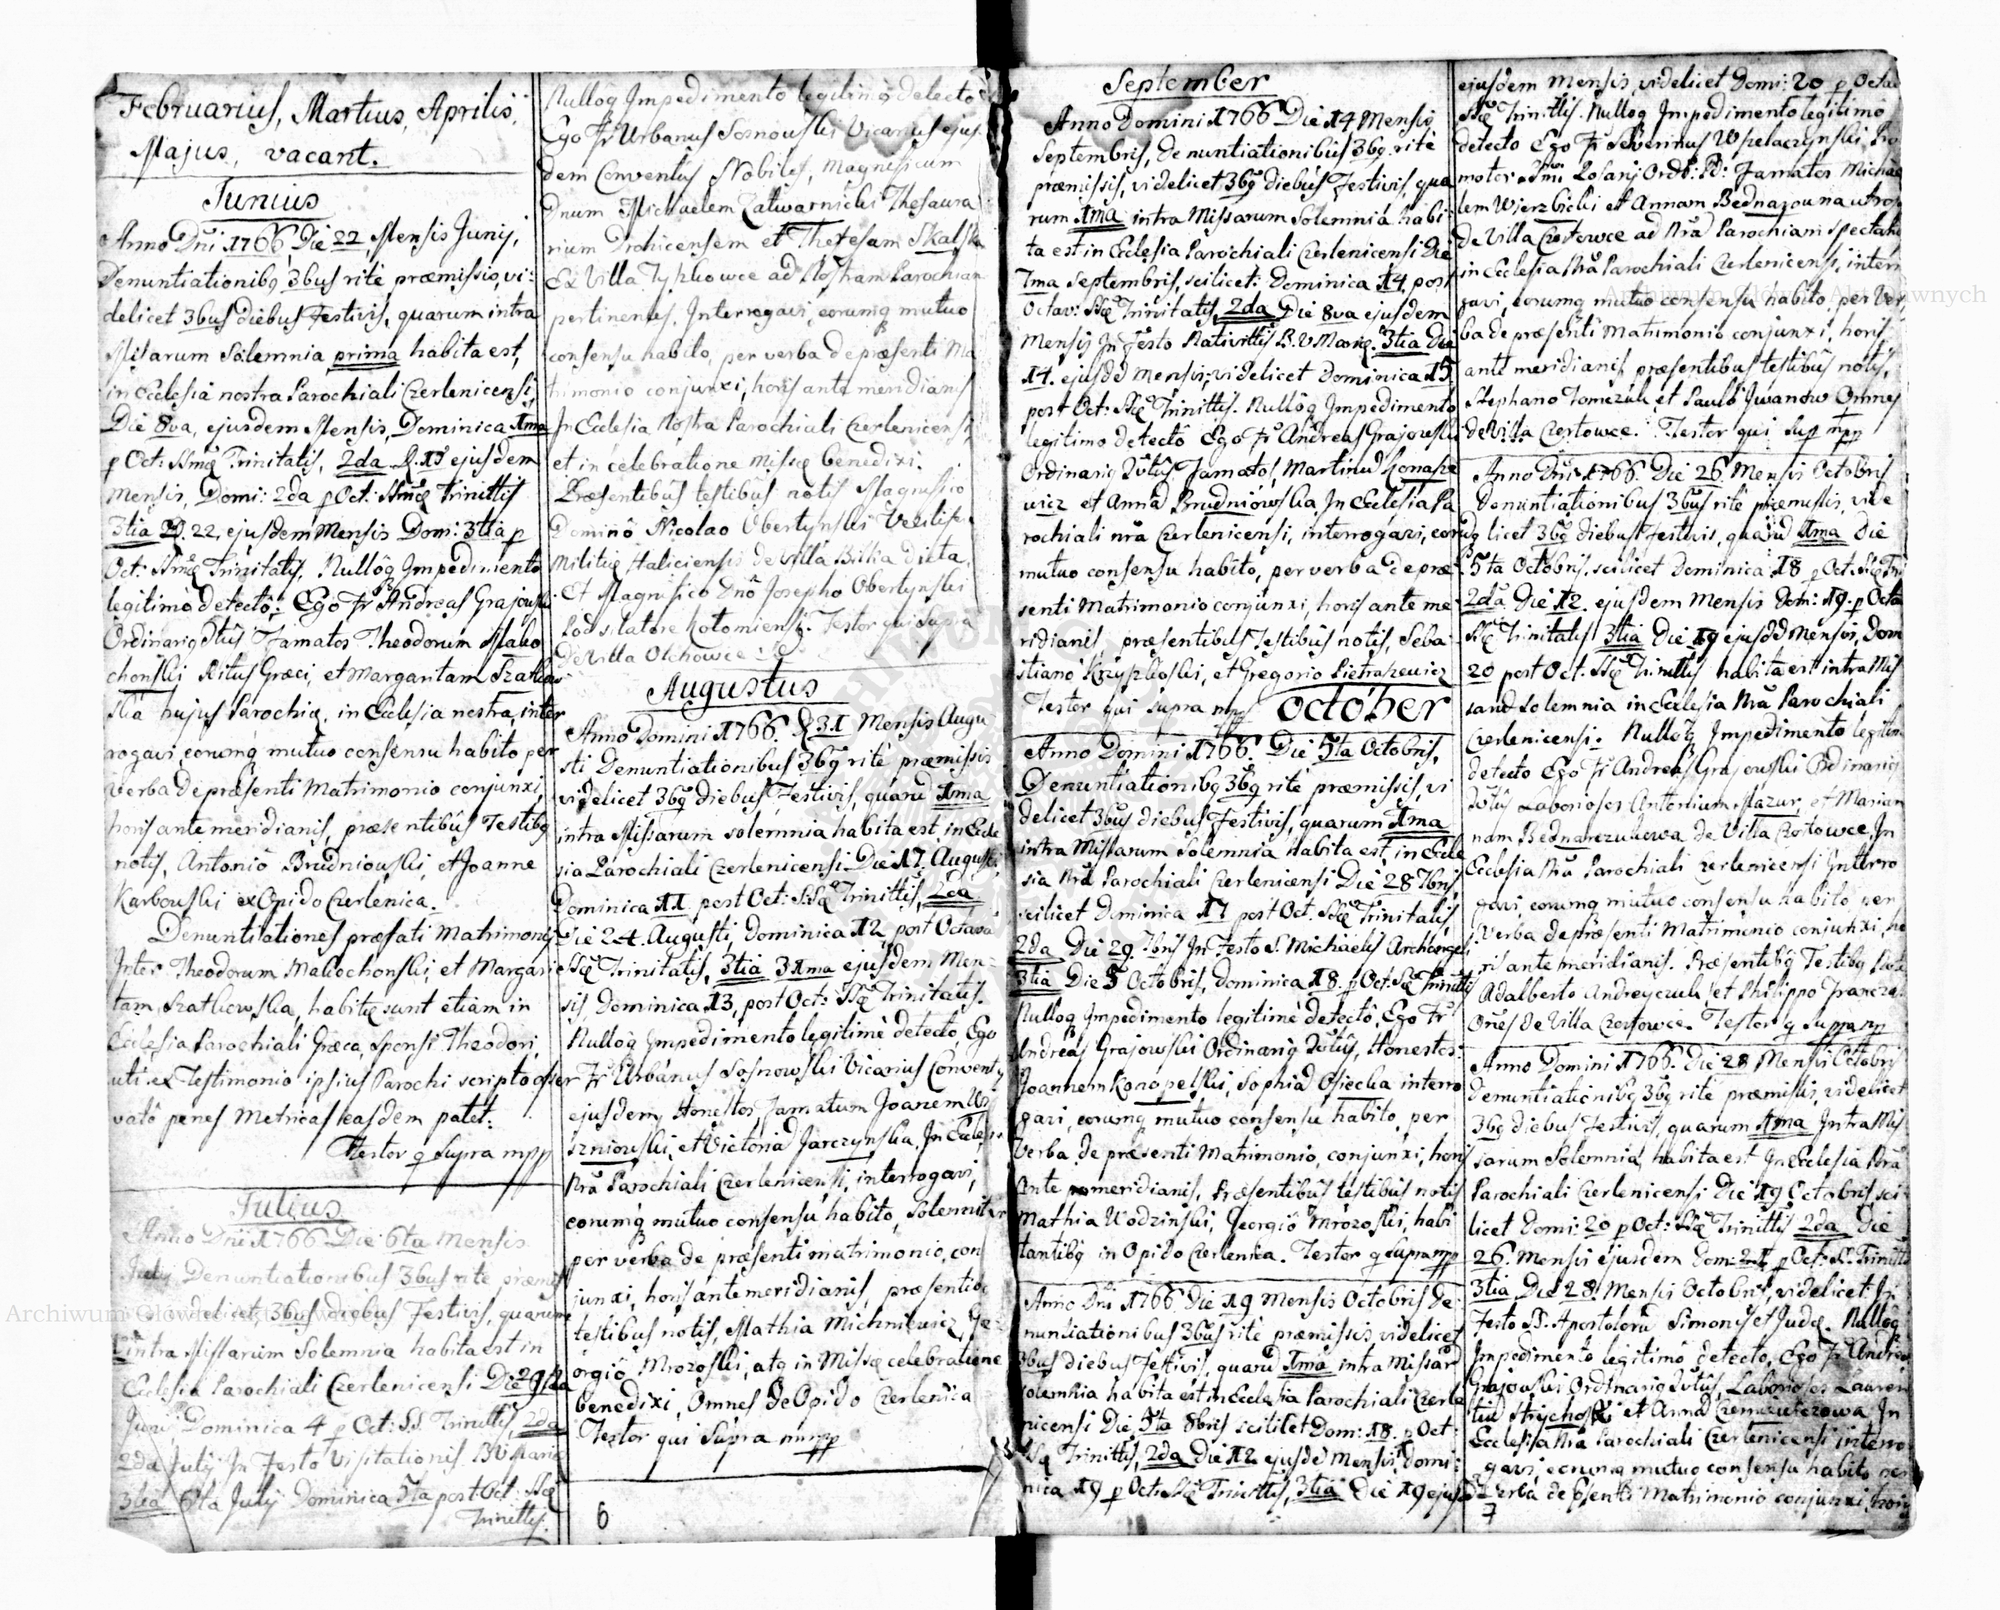 Februarius, Martius, Aprilis,
Majus, vacant.
Junius
Anno Dni 1766 Die 22 Mensis Junij,
Denuntiationibq 3bus ritè præmissis, vi:
delicet 3bus diebus Festivis, quarum intra
Missarum Solemnia prima habita est,
in Ecclesia nostra Parochiali Czerlenicensi,
Die 8va, ejusdem Mensis, Dominica 1ma
p Oct: SSmæ Trinitatis, 2da D. 15 ejusdem
Mensis, Domi: 2da p Oct: SSmæ Trinittis
3tia D. 22, ejusdem Mensis Dom: 3tia p
Oct: SSmæ Trinitatis, Nullôq Impedimento
legitimò detectô: Ego Fr Andreas Grajowski
Ordinariq Ztûs Famatos Theodorum Mako
chonski Ritus Græci, et Margaritam Szatkow
ska hujus Parochiæ, in Ecclesia nostra, inter
rogavi, eorumq mutuo consensu habito per
verba de præsenti Matrimonio conjunxi,
horis ante meridianis, præsentibûs Testibq
notis, Antoniô Brudniowski, et Joanne
Karbowski ex Opido Czerlenica.
Denuntiationes præfati Matrimonij
Inter Theodorum Makochonski, et Margari
tam, Szatkowska, habitæ sunt etiam in
Ecclesia Parochiali Græca, Sponsi Theodori,
uti ex Testimonio ipsius Parochi scripto asser
vatô penes Metricas easdem patet:
Testor q Supra mpp
Julius
Anno Dni 1766 Die 6ta Mensis
July Denuntiationibus 3bus rite præmis
videlicet 3bus diebus Festivis, quarum
intra Missarum Solemnia habita est in
Ecclesia Parochiali Czerlenicensi Die 29
Juny Dominica 4 p Oct: SS Trinittis, 2da
2da July In Festo Visitationis BV Mariæ
3tia 6ta July Dominica 5ta post Oct: SSæ
Trinittis.
Nullôq Impedimento legitimò detecto
Ego Fr Urbanus Sosnowski Vicarius ejus
dem Conventûs Nobiles, Magnificum
Dnum Michaelem Zatwarnicki Thesaura
rium Drohicensem et Theresam Skalska
Ex Villa Tyszkowce ad Nostram Parochiam
pertinentes, Interrogavi, eorumq mutuo
consensu habito, per verba de præsenti Ma
trimonio conjunxi, horis ante meridianis
In Ecclesia Nostra Parochiali Czerlenicensi,
et in celebratione Missæ benedixi.
Præsentibûs testibûs notis Magnifico
Dominô Nicolao Obertynski Vexilif
Militiæ Haliciensis de Villa dicta
Et Magnifico Dnô Josepho Obertynski
Podstolatore Kolomiensi. Testor qui Supra
de Villa Olchowce
Augustus
Anno Domini 1766. D 31 Mensis Augu
sti Denuntiationibus 3bq ritè præmissis
videlicet 3bq diebus Festivis, quarû 1ma
intra Missarum solemnia habita est in Eccle
sia Parochiali Czerlenicensi Die 17. Augusti,
Dominica 11 post Oct: SSæ Trinittis, 2da
Die 24. Augusti, Dominica 12 post Octavâ
SSæ Trinitatis, 3tia 31ma ejusdem Men
sis, Dominica 13, post Oct: SSæ Trinitatis.
Nullôq Impedimento legitimè detecto, Ego
Fr Urbánus Sosnowski Vicarius Conventq
ejusdem, Honestos Famatum Joanem Wi
szniowski, et Victoriâ Jarczynska, In Eccles
Nrâ Parochiali Czerlenicensi, interrogavi,
eorumq mutuo consensu habito, Solemniter
per verba de præsenti matrimonio, con
junxi, horis ante meridianis, præsentibq
testibus notis, Mathia Michniewicz, Ge:
orgiô Mrozoski, atq in Missæ celebratione
benedixi, Omnes de Opido Czerlenica
Testor qui Supra mmpp
6
September
Anno Domini 1766 Die 14 Mensis
Septembris, Denuntiationibus 3bq ritè
præmissis, videlicet 3bq diebus Festivis, qua
rum 1ma intra Missarum Solemnia habi
ta est in Ecclesia Parochiali Czerlenicensi Die
7ma Septembris, scilicet: Dominica 14 post
Octav: SSæ Trinitatis, 2da Die 8va ejusdem
Mensis In Festo Nativittis B.V Mariæ. 3tia Die
14. ejusdê mensis, videlicet Dominica 15
post Oct: SSæ Trinittis. Nullôq Impedimento
legitimo detectô Ego Fr Andreas Grajowski
Ordinariq Ztûs Famatos, Martinû
wicz et Annâ Brudniowska, In Ecclesia Pa
rochiali nrâ Czerlenicensi, interrogavi, eorumq
mutuo consensu habito, per verba de præ
senti Matrimonio conjunxi, horis ante me
ridianis, præsentibus Testibûs notis, Seba
stiano Krzyszkoski, et Gregorio Pietraszewicz
Testor qui Supra mpp October
Anno Domini 1766. Die 5ta Octobris,
Denuntiationibq 3bq ritè præmissis, vi
delicet 3bus diebus Festivis, quarum 1ma
intra Missarum Solemnia habita est, in Eccle
sia Nrâ Parochiali Czerlenicensi Die 28 7bris
scilicet Dominica 17 post Oct. SSæ Trinitatis,
2da Die 29 7bris In Festo S. Michaelis Archangeli
3tia Die 5 Octobris, Dominica 18. p Oct. SSæ Trinittis
Nullôq Impedimento legitimè detectô, Ego Fr
Andreas Grajowski Ordinariq Ztûs, Honestos:
Joannem Konopelski, Sophiâ Osiecka interro
gavi, eorumq mutuo consensu habito, per
Verba de præsenti Matrimonio, conjunxi, horis
Ante meridianis, Præsentibûs testibus notis
Mathia Wodzinski, Georgiô Mrozoski, habi
tantibq in Opido Czerlenica. Testor q Supra mpp
Anno Dni 1766 Die 19 Mensis Octobris De
nuntiationibus 3bus ritè præmissis videlicet
3bus diebus Festivis, quarû 1ma intra Missarû
Solemnia habita est in Ecclesia Parochiali Czerle
nicensi Die 5ta 8bris scilicet Dom: 18. p Oct:
SSæ Trinittis, 2da Die 12 ejusdê Mensis, Domi:
nica 19 p Oct: SSæ Trinittis, 3tia Die 19 ejus
ejusdem Mensis, videlicet Domi: 20 p Octav
SSæ Trinittis. Nullôq Impedimento legitimò
detecto Ego Fr Severinus Wszelaczynski Pro
motor Smi Rosarij Ord: Pd: Famatos Michae
lem Wierzbicki et Annam Bednazouna utrosq
de Villa Czortowce ad Nrâ Parochiam spectan
in Ecclesia Nrâ Parochiali Czerlenicensi, interro
gavi, eorumq mutuo consensu habito, per Ver
ba de præsenti Matrimonio conjunxi, horis
ante meridianis præsentibus testibûs notis,
Stephano Tomczuk, et Paulô Iwanow Omnes
de Villa Czortowce. Testor qui Sup mpp
Anno Dni 1766. Die 26 Mensis Octobris
Denuntiationibus 3bus ritè præmissis, vide
licet 3bq diebus Festivis, quarû 1ma Die
5ta Octobris, scilicet Dominica 18 p Oct. SSæ Tri
2da Die 12. ejusdem Mensis Dom: 19. p Octa
SSæ Trinitatis 3tia Die 19 ejusdê Mensis, Dom
20 post Oct. SSæ Trinittis habita est intra Mis
sarû Solemnia in Ecclesia Nrâ Parochiali
Czerlenicensi. Nullôq Impedimento legitim
detecto Ego Fr Andreas Grajowski Ordinariq
Ztûs Laboriosos Antonium Mazur, et Marian
nam Bednarczukowa de Villa Czortowce In
Ecclesia Nrâ Parochiali Czerlenicensi Interro
gavi, eorumq mutuo consensu habito per
Verba de præsenti Matrimonio conjunxi, ho
ris ante meridianis. Præsentibq Testibq
Adalberto Andreyczuk, et Philippo Francza
Omês de Villa Czortowce. Testor q Supra mpp
Anno Domini 1766. Die 28 Mensis Octobris
Denuntiationibq 3bq rite præmissis, videlicet
3bq diebus Festivis, quarum 1ma Intra Mis
sarum Solemnia, habita est In Ecclesia Nrâ
Parochiali Czerlenicensi Die 19 Octobris sci
licet Domi: 20 p Oct: SSæ Trinittis 2da Die
26. Mensis ejusdem Dom: 21 p Oct: SS. Trinitt
3tia Die 28. Mensis Octobris, videlicet In
Festo SS. Apostolorû Simonis et Judæ. Nullôq
Impedimento legitimô detecto, Ego Fr Andreas
Grajowski Ordinariq Ztûs, Laboriosos Lauren
tiû Strychoski et Annâ In
Ecclesia Nrâ Parochiali Czerlenicensi interro
gavi, eorumq mutuo consensu habito per
Verba de psenti Matrimonio conjunxi, horis
7
Archiwum Główne Akt Dawnych